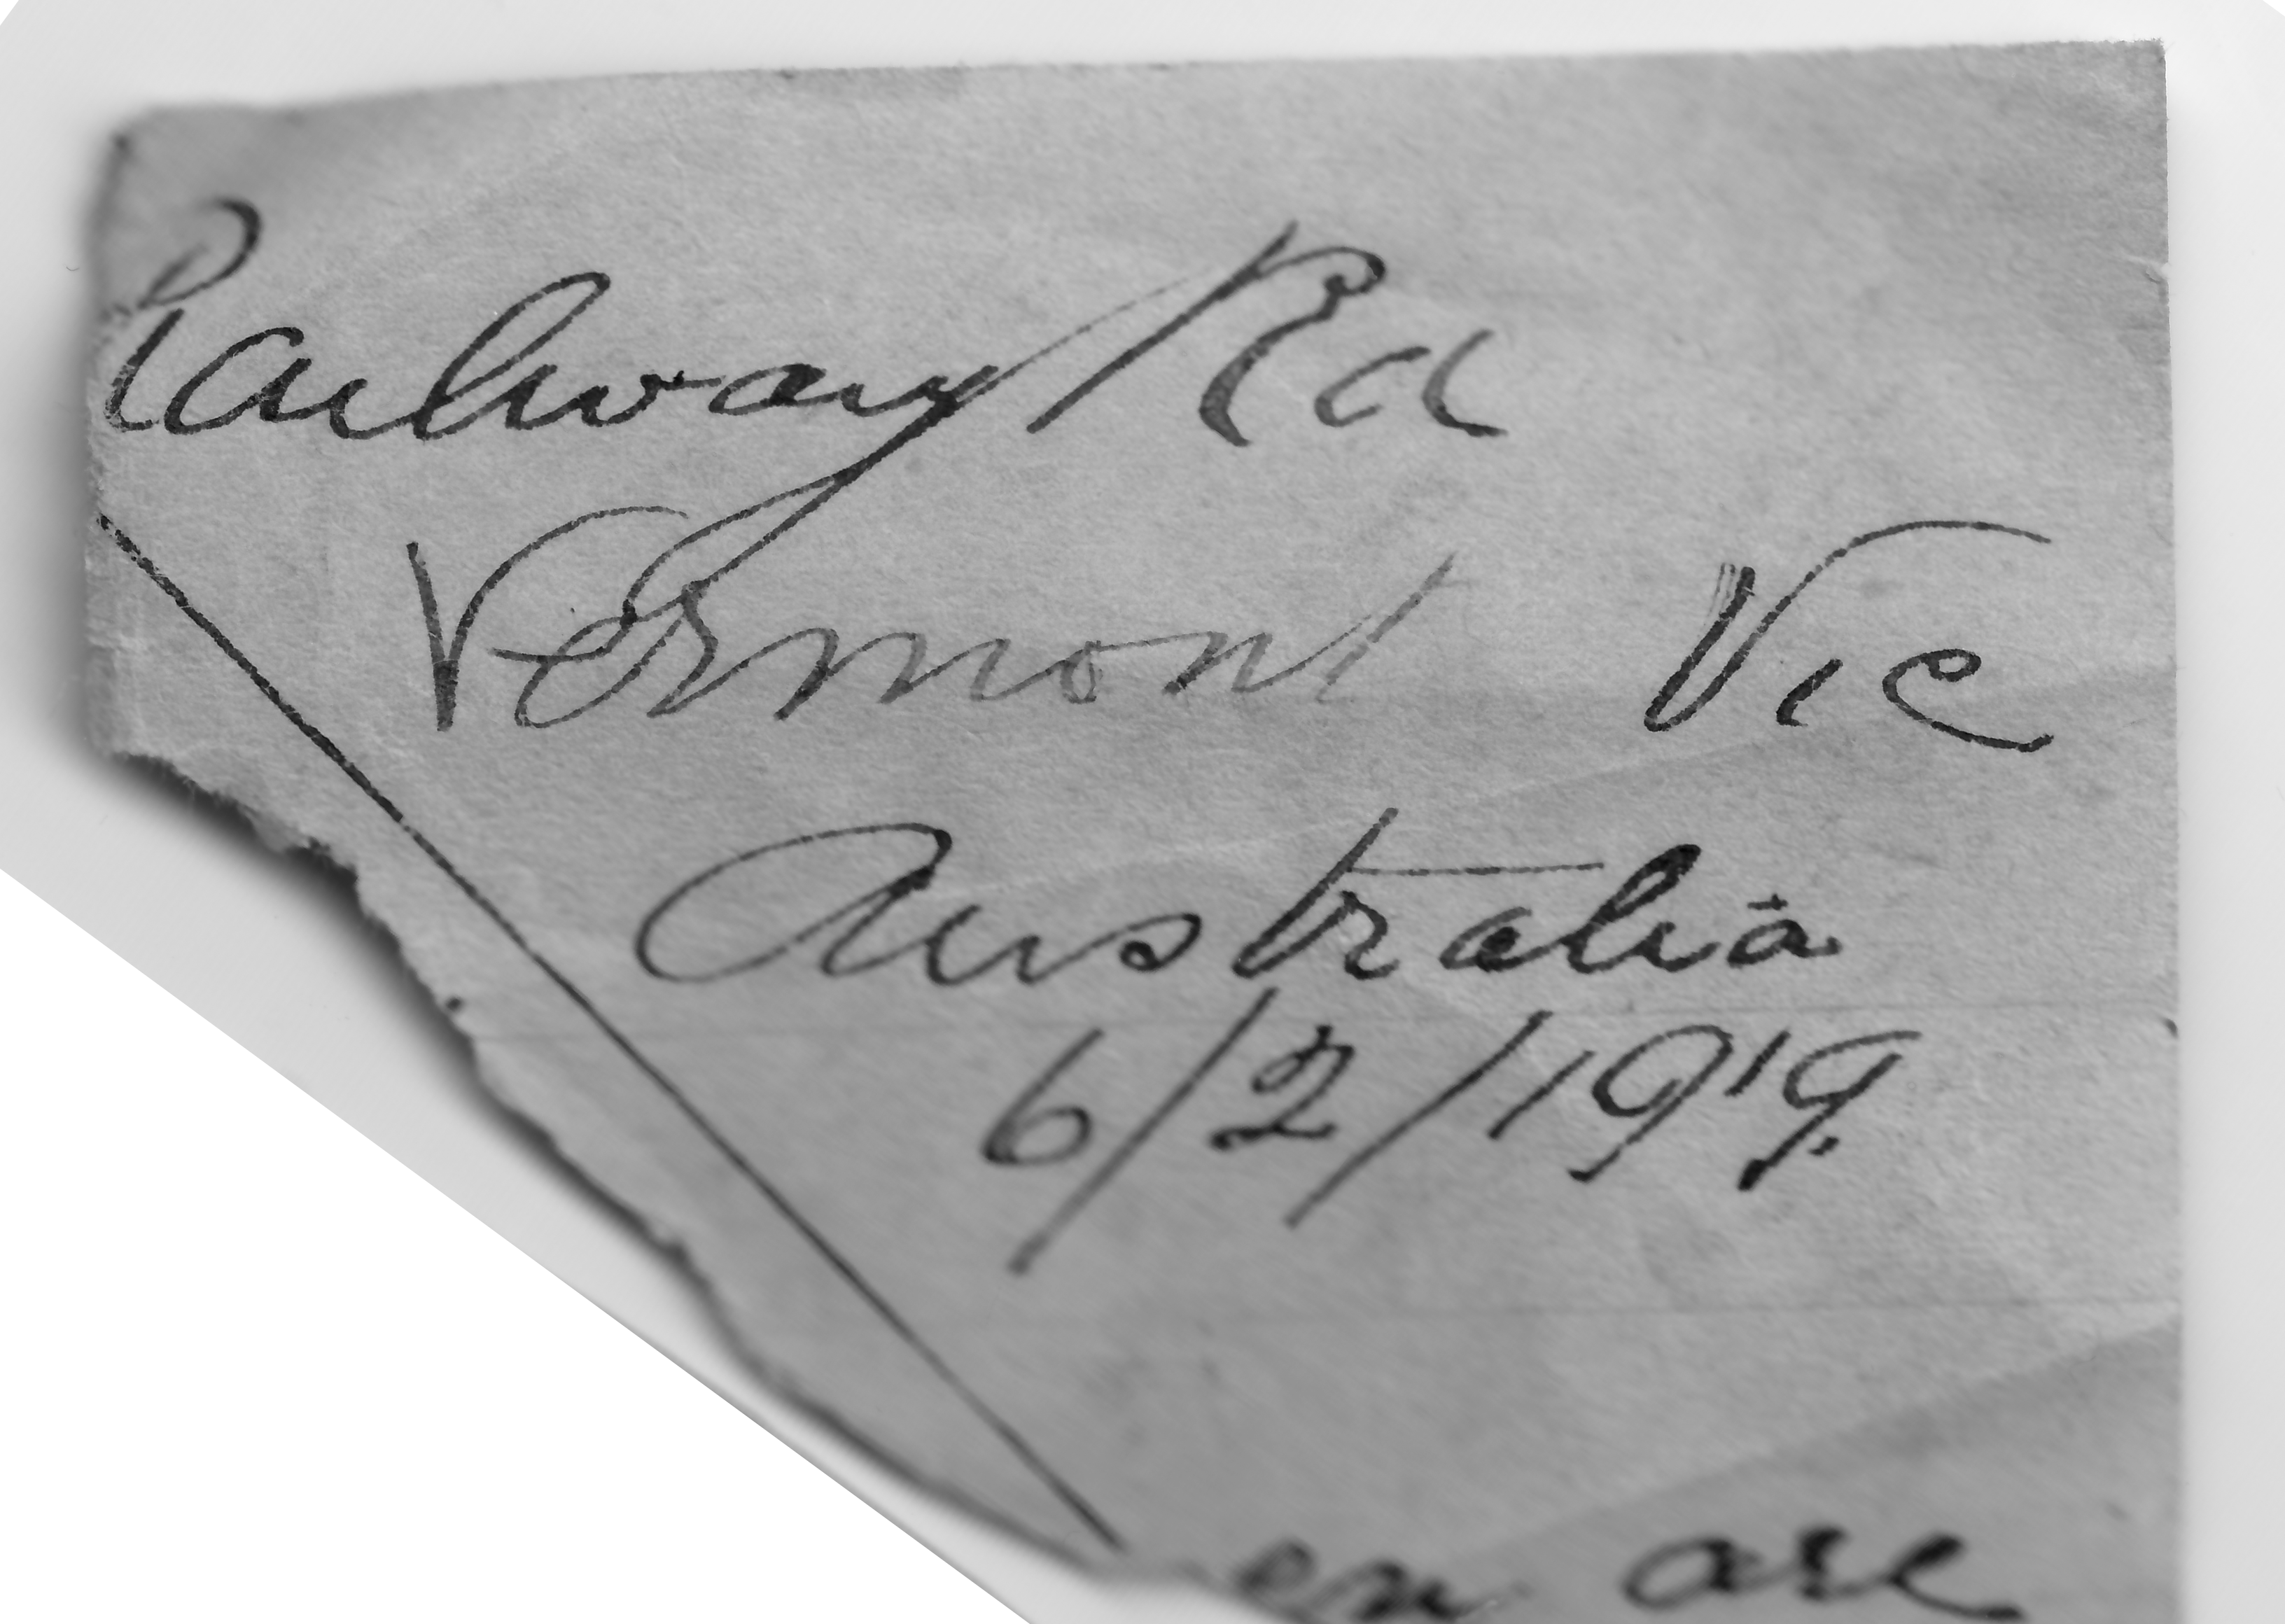 Railway Rd
Vermont Vic
Australia
6/2/1919.
en are